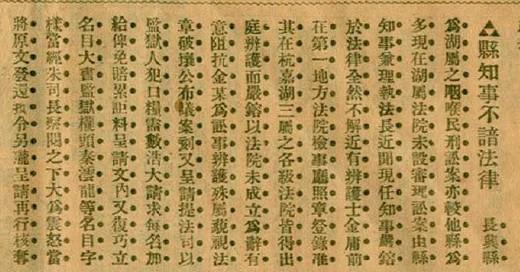 縣知事不諳法律　長興縣
爲湖屬之咽喉民刑訟案亦較他縣爲
多現在湖屬法院未設審理訟案由縣
知事兼理執法長近聞現任知事嚴鎔
於法律全然不解近有辦護士金庸前
在第一地方法院檢事廳照章登錄准
其在杭嘉湖三屬之各級法院皆得出
庭辨護而嚴鎔以法院未成立爲辭有
意阻抗金某爲訟事辨護殊屬藐視法
章破壞公布議案刻又呈請提法司以
監獄人犯口糧需數浩大請求每名加
給俾免賠累詎料呈請文內又復巧立
名目大書監獄櫳頭秦濡龍等名目字
樣當經朱司長察閱之下大爲震怒當
將原文發還批令另備呈請再行核奪